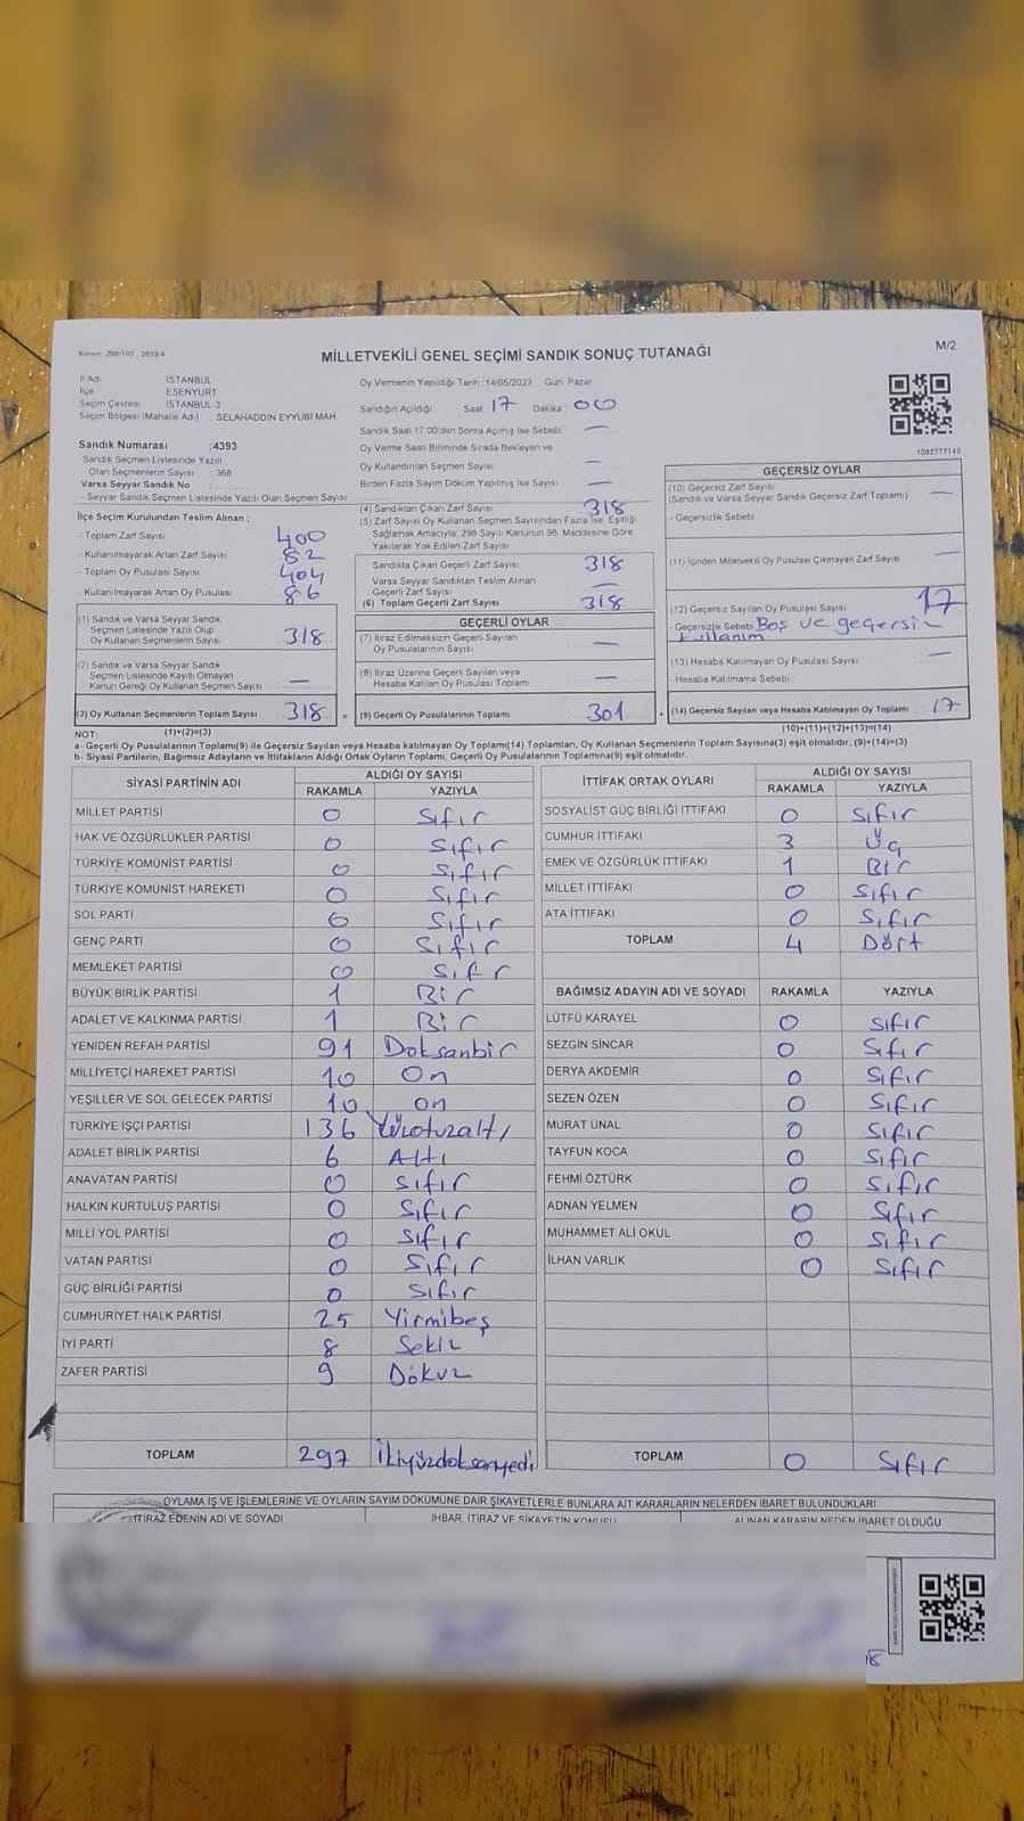 MİLLETVEKİLİ GENEL SEÇİMİ SANDIK SONUÇ TUTANAĞI
M/2
İl Adı : İSTANBUL
İlçe : ESENYURT
Seçim Çevresi : İSTANBUL-3
Seçim Bölgesi (Mahalle Adı) : SELAHADDİN EYYUBİ MAH.
Sandık Numarası :4393
Sandık Seçmen Listesinde Yazılı
Olan Seçmenlerin Sayısı : 368
Varsa Seyyar Sandık No :
Seyyar Sandık Seçmen Listesinde Yazılı Olan Seçmen Sayısı
Oy Vermenin Yapıldığı Tarih :14/05/2023 Gün: Pazar
Sandığın Açıldığı Saat 17 Dakika 00
Sandık Saat 17:00'den Sonra Açılmış İse Sebebi: —
Oy Verme Saati Bitiminde Sırada Bekleyen ve
Oy Kullandırılan Seçmen Sayısı —
Birden Fazla Sayım Döküm Yapılmış İse Sayısı —
1082777145
İlçe Seçim Kurulundan Teslim Alınan ;
- Toplam Zarf Sayısı 400
- Kullanılmayarak Artan Zarf Sayısı 82
- Toplam Oy Pusulası Sayısı 404
- Kullanılmayarak Artan Oy Pusulası 86
(1) Sandık ve Varsa Seyyar Sandık
Seçmen Listesinde Yazılı Olup
Oy Kullanan Seçmenlerin Sayısı 318
(2) Sandık ve Varsa Seyyar Sandık
Seçmen Listesinde Kayıtlı Olmayan
Kanun Gereği Oy Kullanan Seçmen Sayısı —
(3) Oy Kullanan Seçmenlerin Toplam Sayısı 318
(1)+(2)=(3)
(4) Sandıktan Çıkan Zarf Sayısı 318
(5) Zarf Sayısı Oy Kullanan Seçmen Sayısından Fazla İse, Eşitliği
Sağlamak Amacıyla, 298 Sayılı Kanunun 98. Maddesine Göre
Yakılarak Yok Edilen Zarf Sayısı
Sandıkta Çıkan Geçerli Zarf Sayısı 318
Varsa Seyyar Sandıktan Teslim Alınan
Geçerli Zarf Sayısı —
(6) Toplam Geçerli Zarf Sayısı 318
GEÇERLİ OYLAR
(7) İtiraz Edilmeksizin Geçerli Sayılan
Oy Pusulalarının Sayısı —
(8) İtiraz Üzerine Geçerli Sayılan veya
Hesaba Katılan Oy Pusulası Toplamı —
= (9) Geçerli Oy Pusulalarının Toplamı 301
GEÇERSİZ OYLAR
(10) Geçersiz Zarf Sayısı
(Sandık ve Varsa Seyyar Sandık Geçersiz Zarf Toplamı) —
- Geçersizlik Sebebi:
(11) İçinden Milletvekili Oy Pusulası Çıkmayan Zarf Sayısı —
(12) Geçersiz Sayılan Oy Pusulası Sayısı 17
- Geçersizlik Sebebi: Boş ve geçersiz
kullanım
(13) Hesaba Katılmayan Oy Pusulası Sayısı —
- Hesaba Katılmama Sebebi :
+ (14) Geçersiz Sayılan veya Hesaba Katılmayan Oy Toplamı 17
(10)+(11)+(12)+(13)=(14)
NOT:
a- Geçerli Oy Pusulalarının Toplamı(9) ile Geçersiz Sayılan veya Hesaba katılmayan Oy Toplamı(14) Toplamları, Oy Kullanan Seçmenlerin Toplam Sayısına(3) eşit olmalıdır. (9)+(14)=(3)
b- Siyasi Partilerin, Bağımsız Adayların ve İttifakların Aldığı Ortak Oyların Toplamı, Geçerli Oy Pusulalarının Toplamına(9) eşit olmalıdır.
SİYASİ PARTİNİN ADI ALDIĞI OY SAYISI
RAKAMLA YAZIYLA
MİLLET PARTİSİ 0 Sıfır
HAK VE ÖZGÜRLÜKLER PARTİSİ 0 Sıfır
TÜRKİYE KOMÜNİST PARTİSİ 0 Sıfır
TÜRKİYE KOMÜNİST HAREKETİ 0 Sıfır
SOL PARTİ 0 Sıfır
GENÇ PARTİ 0 Sıfır
MEMLEKET PARTİSİ 0 Sıfr
BÜYÜK BİRLİK PARTİSİ 1 Bir
ADALET VE KALKINMA PARTİSİ 1 Bir
YENİDEN REFAH PARTİSİ 91 Doksanbir
MİLLİYETÇİ HAREKET PARTİSİ 10 On
YEŞİLLER VE SOL GELECEK PARTİSİ 10 on
TÜRKİYE İŞÇİ PARTİSİ 136 Yüzotuzaltı
ADALET BİRLİK PARTİSİ 6 Altı
ANAVATAN PARTİSİ 0 Sıfır
HALKIN KURTULUŞ PARTİSİ 0 Sıfır
MİLLİ YOL PARTİSİ 0 Sıfır
VATAN PARTİSİ 0 Sıfır
GÜÇ BİRLİĞİ PARTİSİ 0 Sıfır
CUMHURİYET HALK PARTİSİ 25 Yirmibeş
İYİ PARTİ 8 Sekiz
ZAFER PARTİSİ 9 Dokuz
TOPLAM 297 İkiyüzdoksanyedi
İTTİFAK ORTAK OYLARI ALDIĞI OY SAYISI
RAKAMLA YAZIYLA
SOSYALİST GÜÇ BİRLİĞİ İTTİFAKI 0 Sıfır
CUMHUR İTTİFAKI 3 Üç
EMEK VE ÖZGÜRLÜK İTTİFAKI 1 Bir
MİLLET İTTİFAKI 0 Sıfır
ATA İTTİFAKI 0 Sıfır
TOPLAM 4 Dört
BAĞIMSIZ ADAYIN ADI VE SOYADI RAKAMLA YAZIYLA
LÜTFÜ KARAYEL 0 Sıfır
SEZGİN SİNCAR 0 Sıfır
DERYA AKDEMİR 0 Sıfır
SEZEN ÖZEN 0 Sıfır
MURAT ÜNAL 0 Sıfır
TAYFUN KOCA 0 Sıfır
FEHMİ ÖZTÜRK 0 Sıfır
ADNAN YELMEN 0 Sıfır
MUHAMMET ALİ OKUL 0 Sıfır
İLHAN VARLIK 0 Sıfır
TOPLAM 0 Sıfır
OYLAMA İŞ VE İŞLEMLERİNE VE OYLARIN SAYIM DÖKÜMÜNE DAİR ŞİKAYETLERLE BUNLARA AİT KARARLARIN NELERDEN İBARET BULUNDUKLARI
İTİRAZ EDENİN ADI VE SOYADI İHBAR, İTİRAZ VE ŞİKAYETİN KONUSU ALINAN KARARIN NEDEN İBARET OLDUĞU